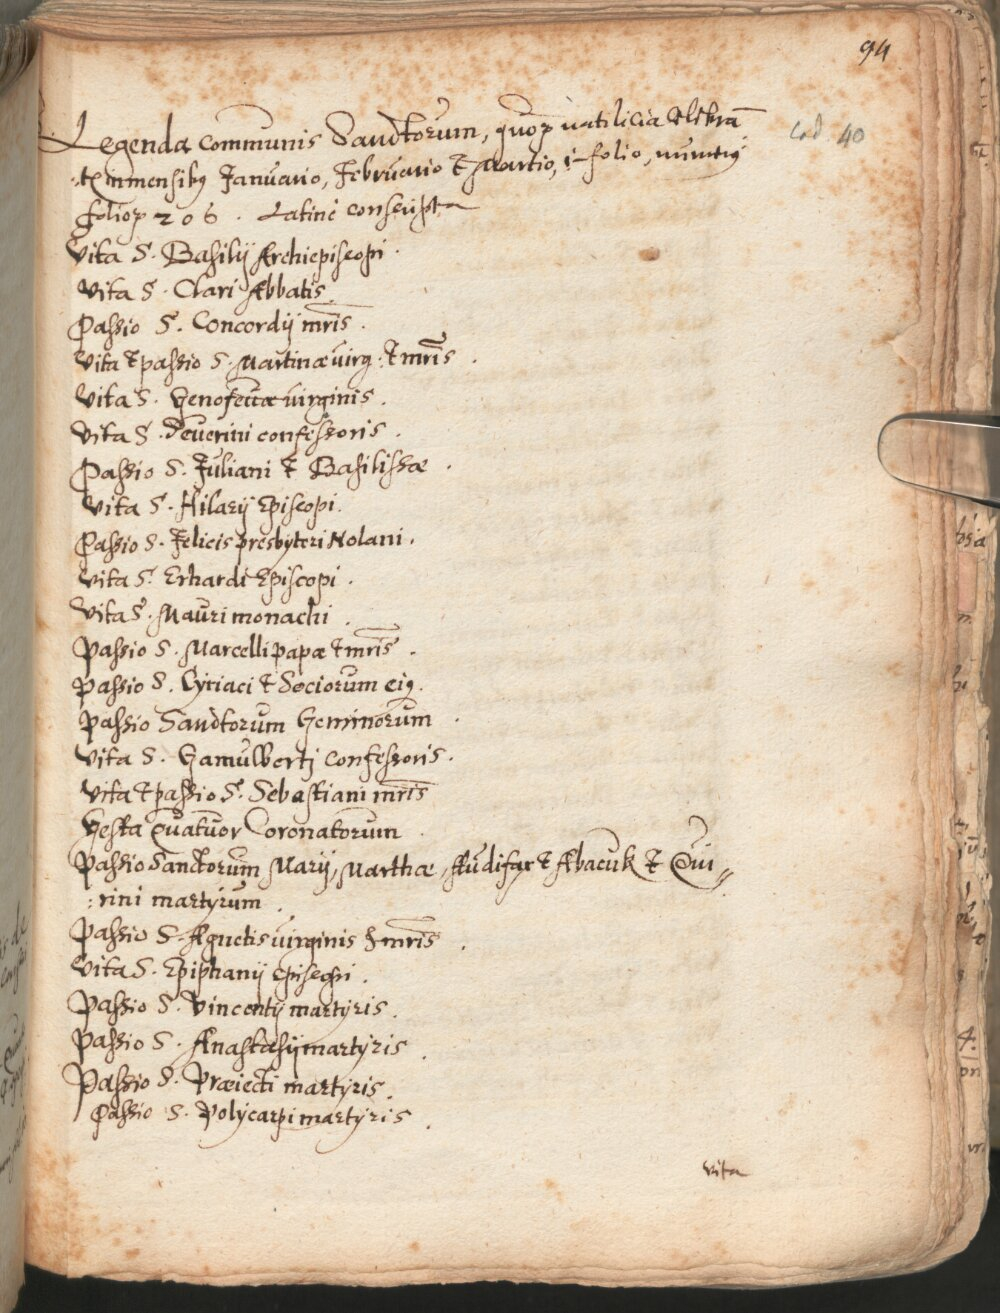 94
Legenda communis Sanctorum, quoꝝ natilicia celebrā
tꝛ in mensibꝰ Januario, Februario & Martio, ī folio, numerꝰ
Cod. 40
folioꝝ 206. Latine conscripta
Vita S. Basilij Archiepiscopi.
Vita S. Clari Abbatis.
Passio S. Concordij mr̄is.
Vita & passio S. Martinæ virg: & mr̄is.
Vita S. Genofevæ virginis.
Vita S. Severini confessoris.
Passio S. Juliani & Basilissæ.
Vita S. Hilarij Episcopi.
Passio S. Felicis presbyteri Nolani.
Vita S. Erhardi Episcopi.
Vita S. Mauri monachi.
Passio S. Marcelli papæ & mr̄is.
Passio S. Cyriaci & Sociorum eiꝰ.
Passio Sanctorum Geminorum.
Vita S. Gamulberti confessoris.
Vita & passio S. Sebastiani mr̄is
Gesta Quatuor Coronatorum.
Passio Sanctorum Marij, Marthæ, Audifax & Abacuk & Qui⸗
:rini martyrum.
Passio S. Agnetis virginis & mr̄is.
Vita S. Epiphanij Episcopi.
Passio S. Vincentij martyris.
Passio S. Anastasij martyris.
Passio S. Præiecti martyris.
Passio S. Polycarpi martyris.
Vita